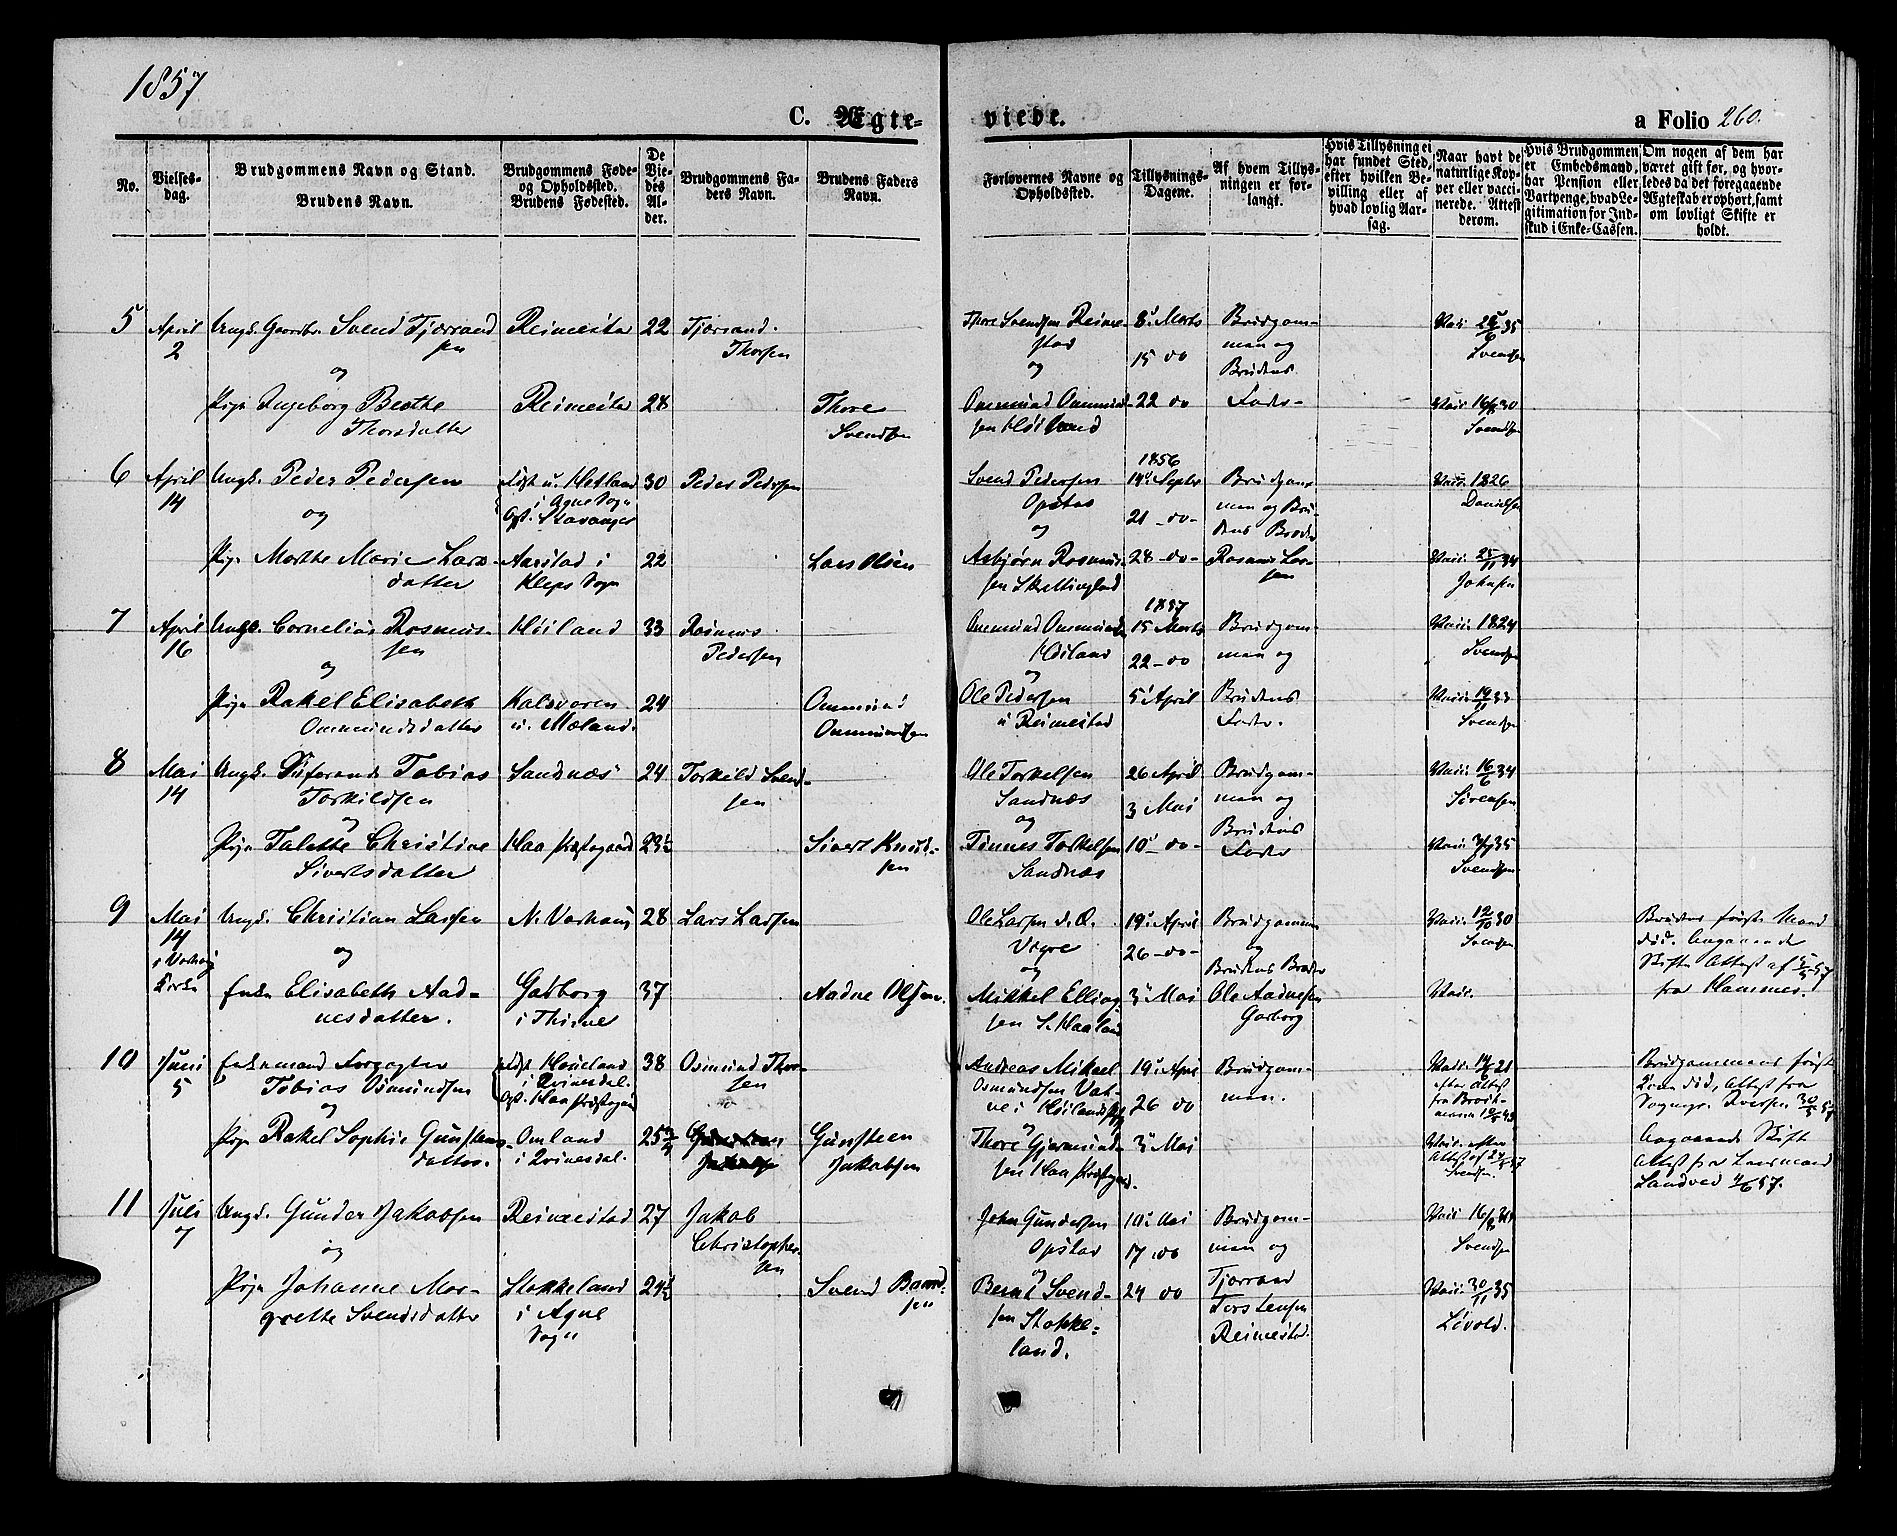 1857
C. Ægte-
viede.
a Folio 260.
No.
Vielses-
dag.
Brudgommens Navn og Stand.
Brudens Navn.
Brudgommens Føde-
og Opholdssted.
Brudens Fødested.
De
Vie-
des
Al-
der.
Brudgommens Fa-
ders Navn.
Brudens Faders
Navn.
Forlovernes Navne og
Opholdssted.
Tillysnings-
Dagene.
Af hvem Tillys-
ningen er for-
langt.
Hvis Tillysning ei
har fundet Sted,
efter hvilken Be-
villing eller af
hvad lovlig Aar-
sag.
Naar havt de
naturlige Kop-
per eller vacci-
nerede. Attest
derom.
Hvis Brudgommen
er Embedsmand,
har Pension eller
Vartpenge, hvad Le-
gitimation for Ind-
skud i Enke-Cassen.
Om nogen af dem har
været gift før, og hvor-
ledes da det foregaaende
Ægteskab er ophørt, samt
om lovligt Skifte er
holdt.
5
April
2
Ungk. Gaardbr. Svend Tjærand
sen
og
Pige Ingeborg Berthe
Thorsdatter
Reimestad
Reimestad
22
28
Tjærand
Thorsen
Thore
Svendsen
Thore Svendsen Reime
stad
og
Ommund Ommund-
sen Høiland
8' Marts
15 do
22 do
Brudgom-
men og
Brudens
Fader
Vaci. 25/6 35
Svendsen
Vaci. 16/8 30
Svendsen
6
April
14
Ungk. Peder Pedersen
og
Pige Marthe Marie Lars-
datter
Født u. Hetland
i Agne Sogn
Opt. Stavanger
Aarstad i
Kleps Sogn
30
22
Peder Pedersen
Lars Olsen
Svend Pedersen
Opstad
og
Asbjørn Rasmus-
sen Skrettingstad
1856
14' Septbr
21 - do -
28 - do -
Brudgom
men og Bru
dens Broder
Rasmus Lar-
sen
Vaci. 1826
Danielsen
Vaci. 25/11 34
Johnsen
7
April
16
Ungk. Cornelius Rasmus-
sen
og
Pige Rakel Elisabeth
Ommundsdatter
Høiland
Kalsvoren
u. Mæland.
33
24
Rasmus
Pedersen
Ommund
Ommundsen
Ommund Ommunds
Høiland
og
Ole Pedersen
u Reimestad
1857
15 Marts
22 - do
5' April
Brudgom-
men og
Brudens
Fader.
Vaci. 1824
Svendsen
Svendsen
8
Mai
14
Ungk. Tobias
Torkildsen
og
Pige Talette Christine
Sivertsdatter
Sandnæs
Haa Præstegaard
24
23½
Torkild Svend-
sen
Sivert Knud-
sen
Ole Torkelsen
Sandnæs
og
Tønnes Torkelsen
Sandnæs
26 April
3 Mai
10' - do -
Brudgom-
men og
Brudens
Fader
Vaci. 16/6 34
Sørensen
Svendsen
9
Mai
14
i Varhoug
Kirke
Ungk. Christian Larsen
og
Enke Elisabeth Aad-
nesdatter.
N. Varhoug
Garborg
i Thime
28
37
Lars Larsen
Aadne Olsen.
Ole Larsen d. Æ.
Vigre
og
Mikkel Elling
sen S. Haaland
19' April
26 - do -
3' Mai
Brudgommen
og
Brudens Broder
Ole Aadnesen
Garborg
Vaci. 12/10 30
Svendsen
Vaci.
Brudens første Mand
død. Angaaende
Skifte Attest af 5/5 57
fra Hammer.
10
Juni
5
Enkemand Forpagter
Tobias Osmundsen
og
Pige Rakel Sophie Gunsteens-
datter.
Født Houeland
i Qvinesdal.
Opt. Haa Præstegaard
Omland
i Qvinesdal.
38
25
Osmund Thor-
sen
Gunsteen
Jakobsen
Andreas Mikael
Osmundsen Vat-
ne i Høilands
og
Thore Gjermund-
sen Haa Præstegaard.
19' April
26 do
3' Mai
Brudgom-
men.
Vaci. 14/6 21
efter Attest
Vaci. efter
Svendsen.
Brudgommens første
Kone død, Attest fra
Sognepr. Iversen 30/5 57
Angaaende Skifte
Attest fra Lensmand
Landved 2/6 57.
11
Juli
7
Ungk. Gunder Jakobsen
og
Pige Johanne Mar-
grethe Svendsdatter
Reimestad
Stokkeland
i Agne
Sogn
27
24½
Jakob
Christopher-
sen
Svend Berndt-
sen
John Gundersen
Opstad
og
Bernt Svend-
sen Stokke-
land.
10' Mai
17 do
24 do
Brudgom-
men og
Tjærand
Torstensen
Reimestad.
Svendsen
Vaci. 30/11 35
Løvold.